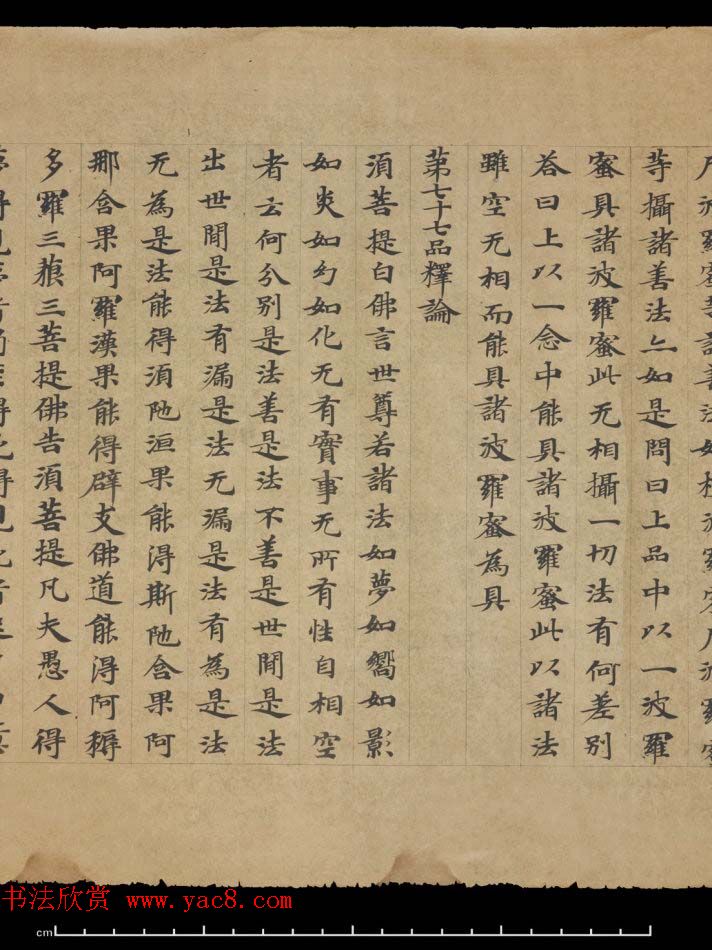 尸波羅蜜等諸善法如檀波羅蜜尸波羅蜜
等攝諸善法亦如是問曰上品中以一波羅
蜜具諸波羅蜜此无相攝一切法有何差别
荅曰上以一念中能具諸波羅蜜此以諸法
雖空无相而能具諸波羅蜜為具
苐七十七品釋論
湏菩提白佛言世尊若諸法如夢如嚮如影
如炎如幻如化无有實事无所有性自相空
者云何分别是法善是法不善是世間是法
出世間是法有漏是法无漏是法有為是法
无為是法能得湏陁洹果能得斯陁含果阿
那含果阿羅漢果能得辟支佛道能得阿耨
多羅三藐三菩提佛告湏菩提凡夫愚人得
书法欣赏 www.yac8.com
cm